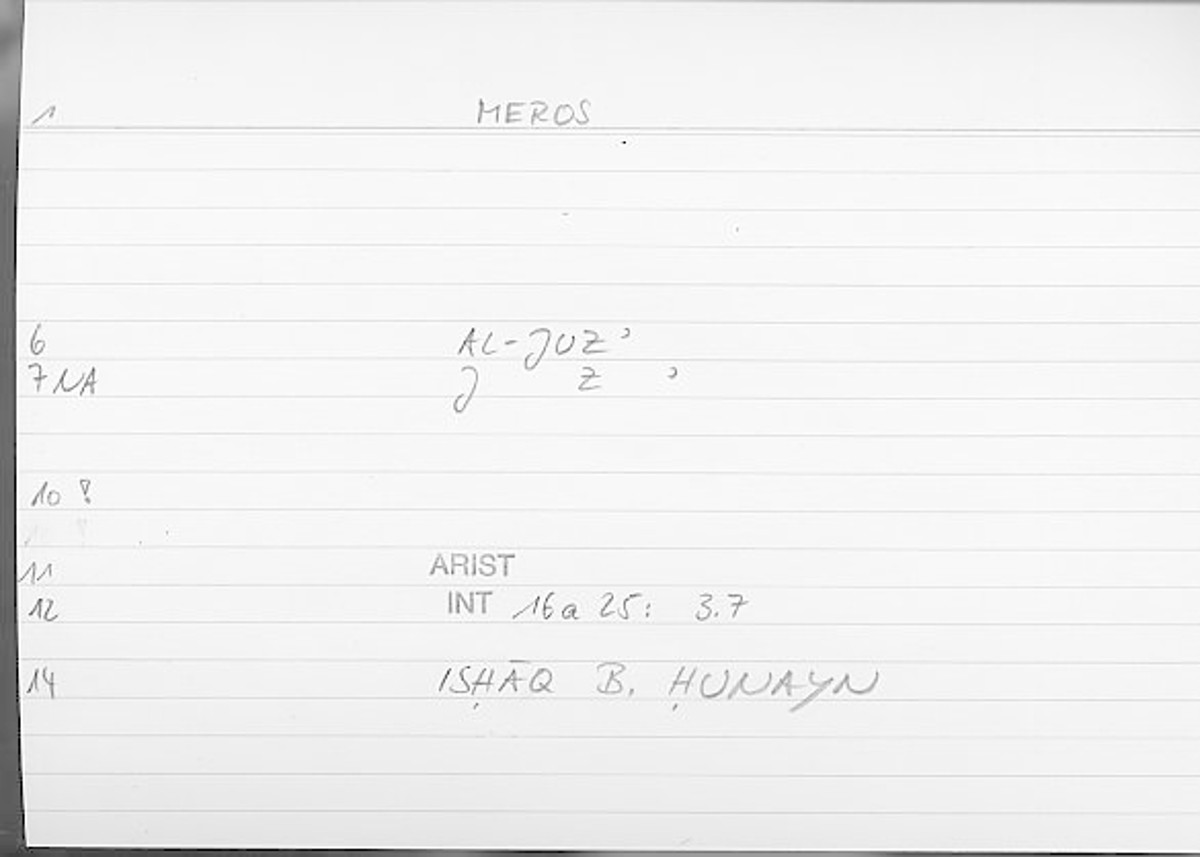 1 MEROS
6 AL-JUZʾ
7 NA J Z ʾ
10 !
11 ARIST
12 INT 16a 25: 3.7
14 ISḤĀQ B. ḤUNAYN